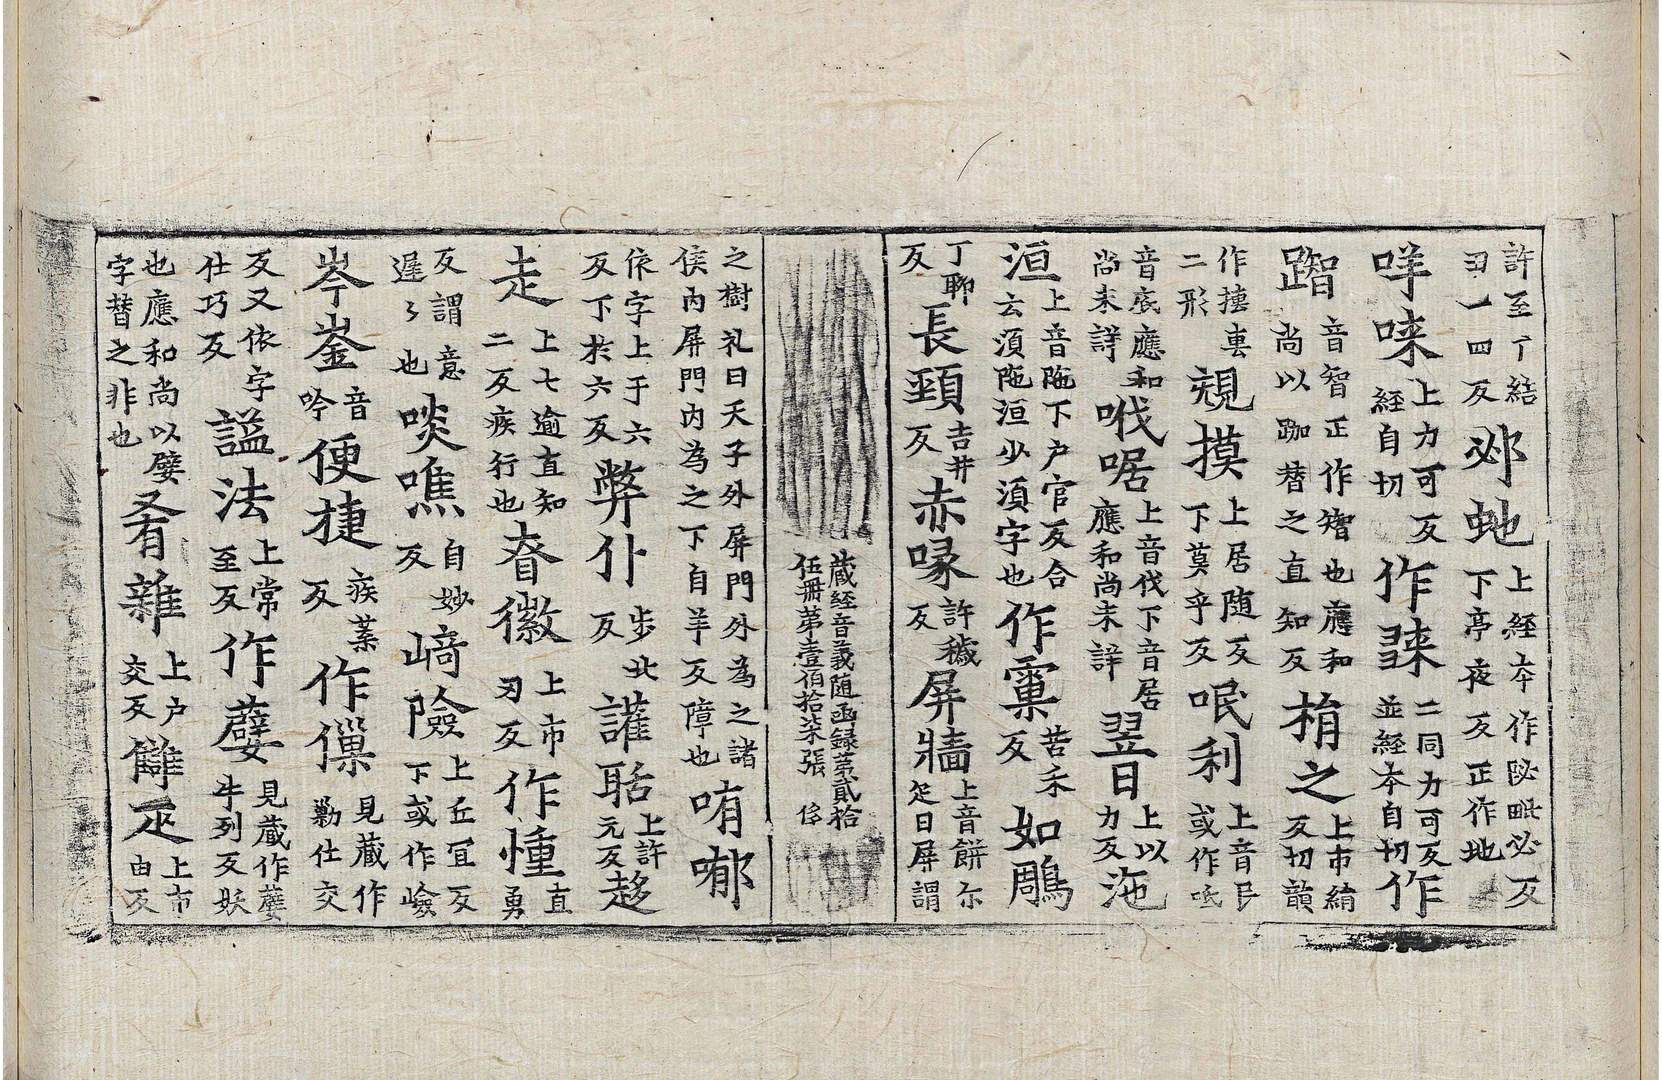 許至丁結
刃一四反
邲虵
上經夲作䛑毗必反
下亭夜反正作地
咩唻
上力可反
經自切
作䚅
二同力可反
並經夲自切
作
踟
音智正作𥏼也應和
尚以跏替之直知反
揹之
上市綃
反切韻
作攄裏
二形
覢摸
上居随反
下莫乎反
呡利
上音民
或作呧
音底應和
尚未詳
哦啹
上音伐下音居
應和尚未詳
翌日
上以
力反
沲
洹
上音陁下户官反合
云湏陁洹少湏字也
作窠
苦禾
反
如鵰
丁聊
反
長頸
吉井
反
赤喙
許穢
反
屏牆
上音餅尓
疋曰屏謂
藏經音義随函録苐貳拾
伍冊苐壹伯拾柒張 侈
之樹礼曰天子外屏門外為之諸
侯内屏門内為之下自羊反障也
唷唧
依字上于六
反下扵六反
弊仆
步北
反
讙聒
上許
元反
趍
走
上七逾直知
二反疾行也
眘徽
上市
刃反
作慟
直
勇
反謂意
遲〻也
啖噍
自妙
反
崎險
上丘冝反
下或作嶮
岑崟
音
吟
便捷
疾葉
反
作𠎿
見藏作
勦仕交
反又依字
仕巧反
謚法
上常
至反
作孽
見藏作蘖
牛列反妖
也應和尚以嬖
字替之非也
肴雜
上户
交反
讎疋
上市
由反